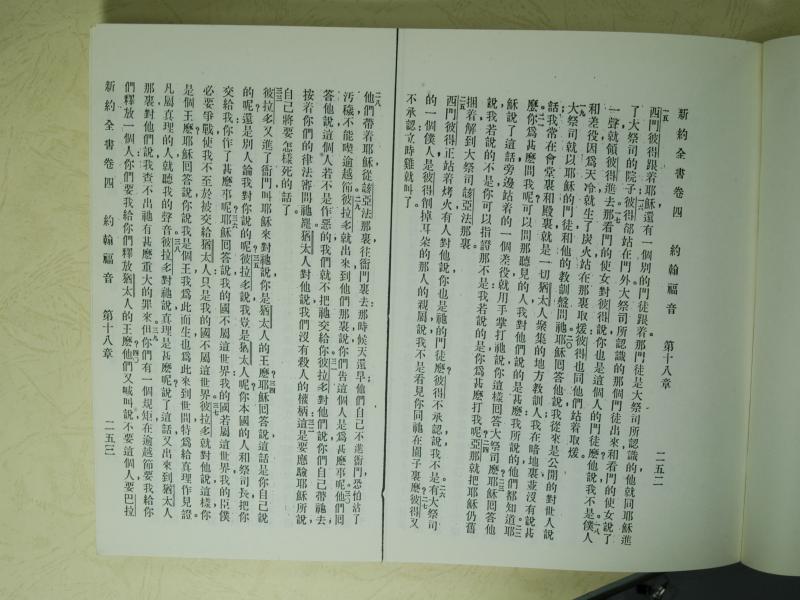 新約全書卷四　約翰福音　第十八章　二五二
一五西門彼得跟着耶穌還有一個別的門徒跟着那門徒是大祭司所認識的他就同耶穌進
了大祭司的院子彼得卻站在門外大祭司所認識的那個門徒出來和看門的使女說了
一聲就領彼得進去那看門的使女對彼得說你也是這個人的門徒麼他說我不是僕人
和差役因爲天冷就生了炭火站在那裏取煖彼得也同他們站着取煖
大祭司就以耶穌的門徒和他的教訓盤問祂耶穌回答他說我從來是公開的對世人說
話我常在會堂裏和殿裏就是一切猶太人聚集的地方教訓人我在暗地裏並沒有說甚
麼你爲甚麼問我呢可以問那聽見的人我對他們說的是甚麼我所說的他們都知道耶
穌說了這話旁邊站着的一個差役就用手掌打祂說你這樣回答大祭司麼耶穌回答他
說我若說的不是你可以指證那不是我若說的是你爲甚麼打我呢亞那就把耶穌仍舊
捆着解到大祭司該亞法那裏
二五西門彼得正站着烤火有人對他說你也是祂的門徒麼彼得不承認說我不是有大祭司
的一個僕人是彼得削掉耳朵的那人的親屬說我不是看見你同祂在園子裏麼彼得又
不承認立時雞就叫了
二八他們帶着耶穌從該亞法那裏往衙門裏去那時候天還早他們自己不進衙門恐怕沾了
污穢不能喫逾越節彼拉多就出來到他們那裏說你們告這個人是爲甚麼事呢他們回
答他說這個人若不是作惡的我們就不把祂交給你彼拉多對他們說你們自己帶祂去
按着你們的律法審問祂罷猶太人對他說我們沒有殺人的權柄這是要應驗耶穌所說
自己將要怎樣死的話了
三三彼拉多又進了衙門叫耶穌來對祂說你是猶太人的王麼耶穌回答說這話是你自己說
的呢還是別人論我對你說的呢彼拉多說我豈是猶太人呢你本國的人和祭司長把你
交給我你作了甚麼事呢耶穌回答說我的國不屬這世界我的國若屬這世界我的臣僕
必要爭戰使我不至於被交給猶太人只是我的國不屬這世界彼拉多就對他說這樣你
是個王麼耶穌回答說你說我是個王我爲此而生也爲此來到世間特爲給真理作見證
凡屬真理的人就聽我的聲音彼拉多對祂說真理是甚麼呢說了這話又出來到猶太人
那裏對他們說我查不出祂有甚麼重大的罪來但你們有一個規矩在逾越節要我給你
們釋放一個人你們要我給你們釋放猶太人的王麼他們又喊叫說不要這個人要巴拉
新約全書卷四　約翰福音　第十八章　二五三